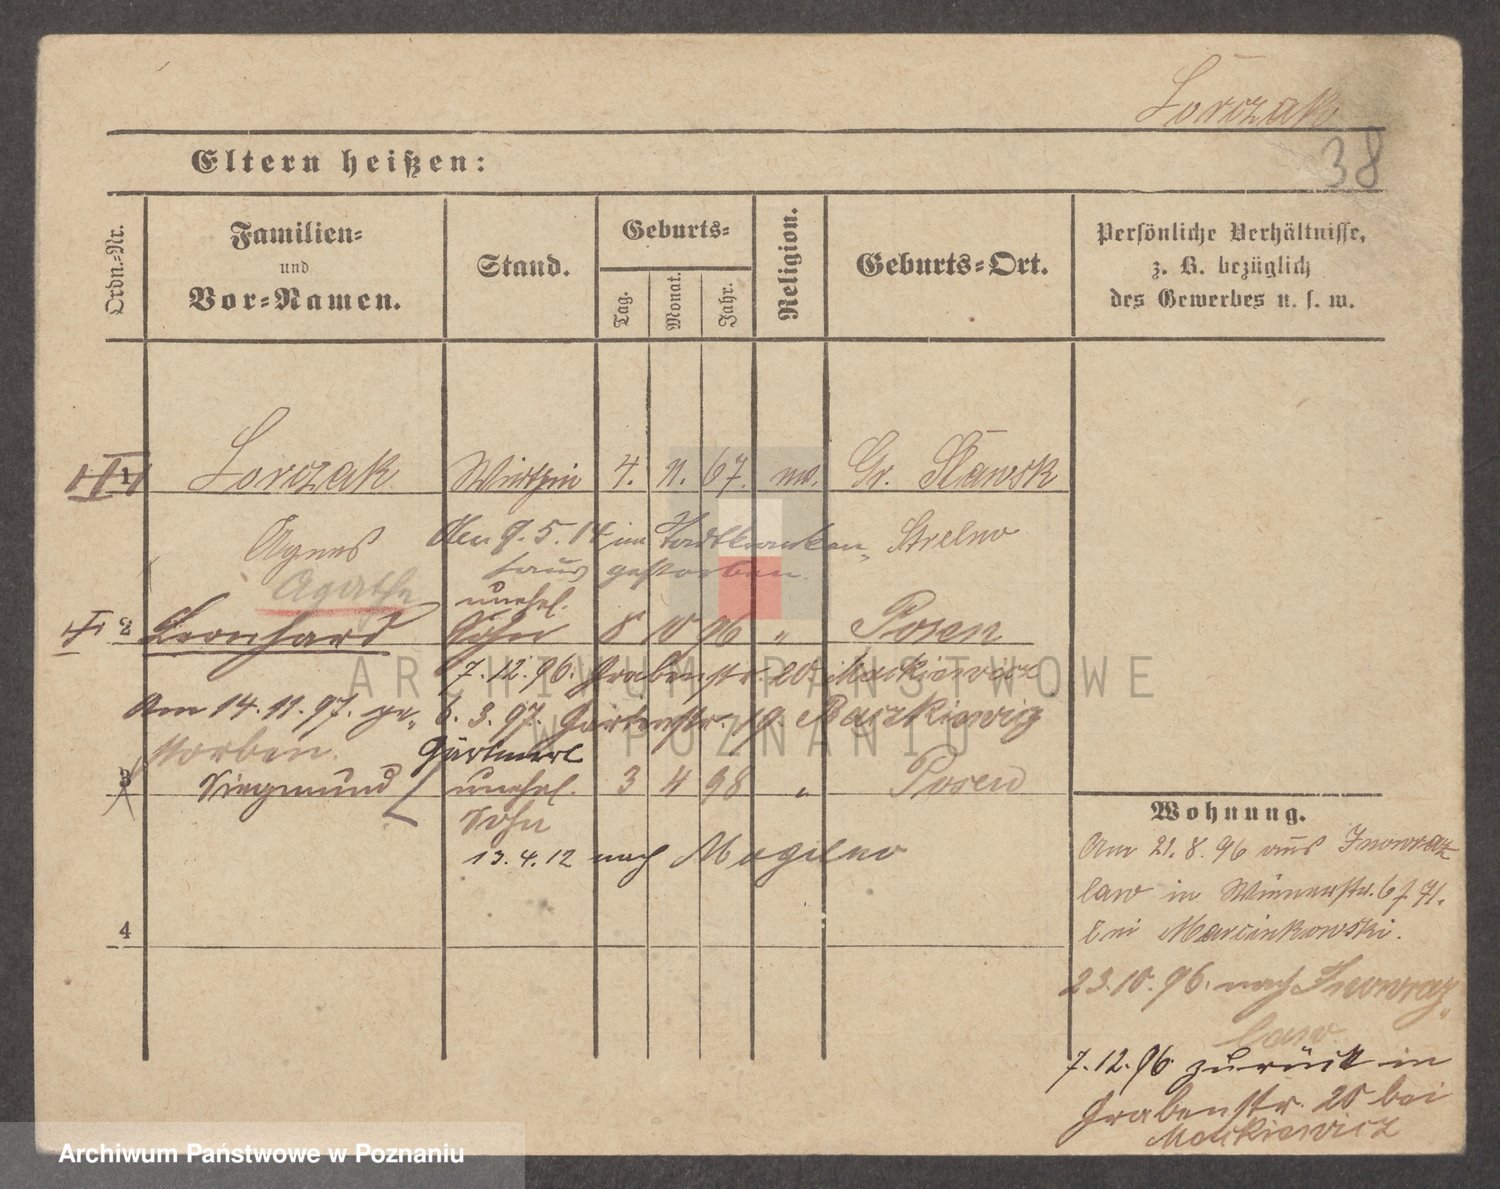 Lorczak
38
Eltern heißen:
Ordn.-Nr.
Familien-
und
Vor-Namen.
Stand.
Geburts-
Tag.
Monat.
Jahr.
Religion.
Geburts-Ort.
Persönliche Verhältnisse,
z. B. bezüglich
des Gewerbes u. s. w.
1 Lorczak Wirthin 4. 11. 67. Gr. Slawsk
Agnes Am 9. 5. 14 im Stadtkranken- Strelno
haus gestorben.
Agathe
unehel.
2 Leonhard Sohn 8 10 96 " Posen
7.12.96. Grabenstr. 20. Mackiewicz
Am 14.11.97. ge- 6. 3. 97. Gartenstr. 19. Raczkiewicz
storben. Gärtnerl
3 Siegmund unehel. 3 4 98 " Posen
Sohn
13.4.12 nach Mogilno
4
Wohnung.
Am 21.8.96 aus Inowraz-
law in 71.
bei Marcinkowski.
23.10.96. nach Inowraz-
law.
7.12.96 zurück in
Grabenstr. 20 bei
Mackiewicz
ARCHIWUM PAŃSTWOWE
W POZNANIU
Archiwum Państwowe w Poznaniu